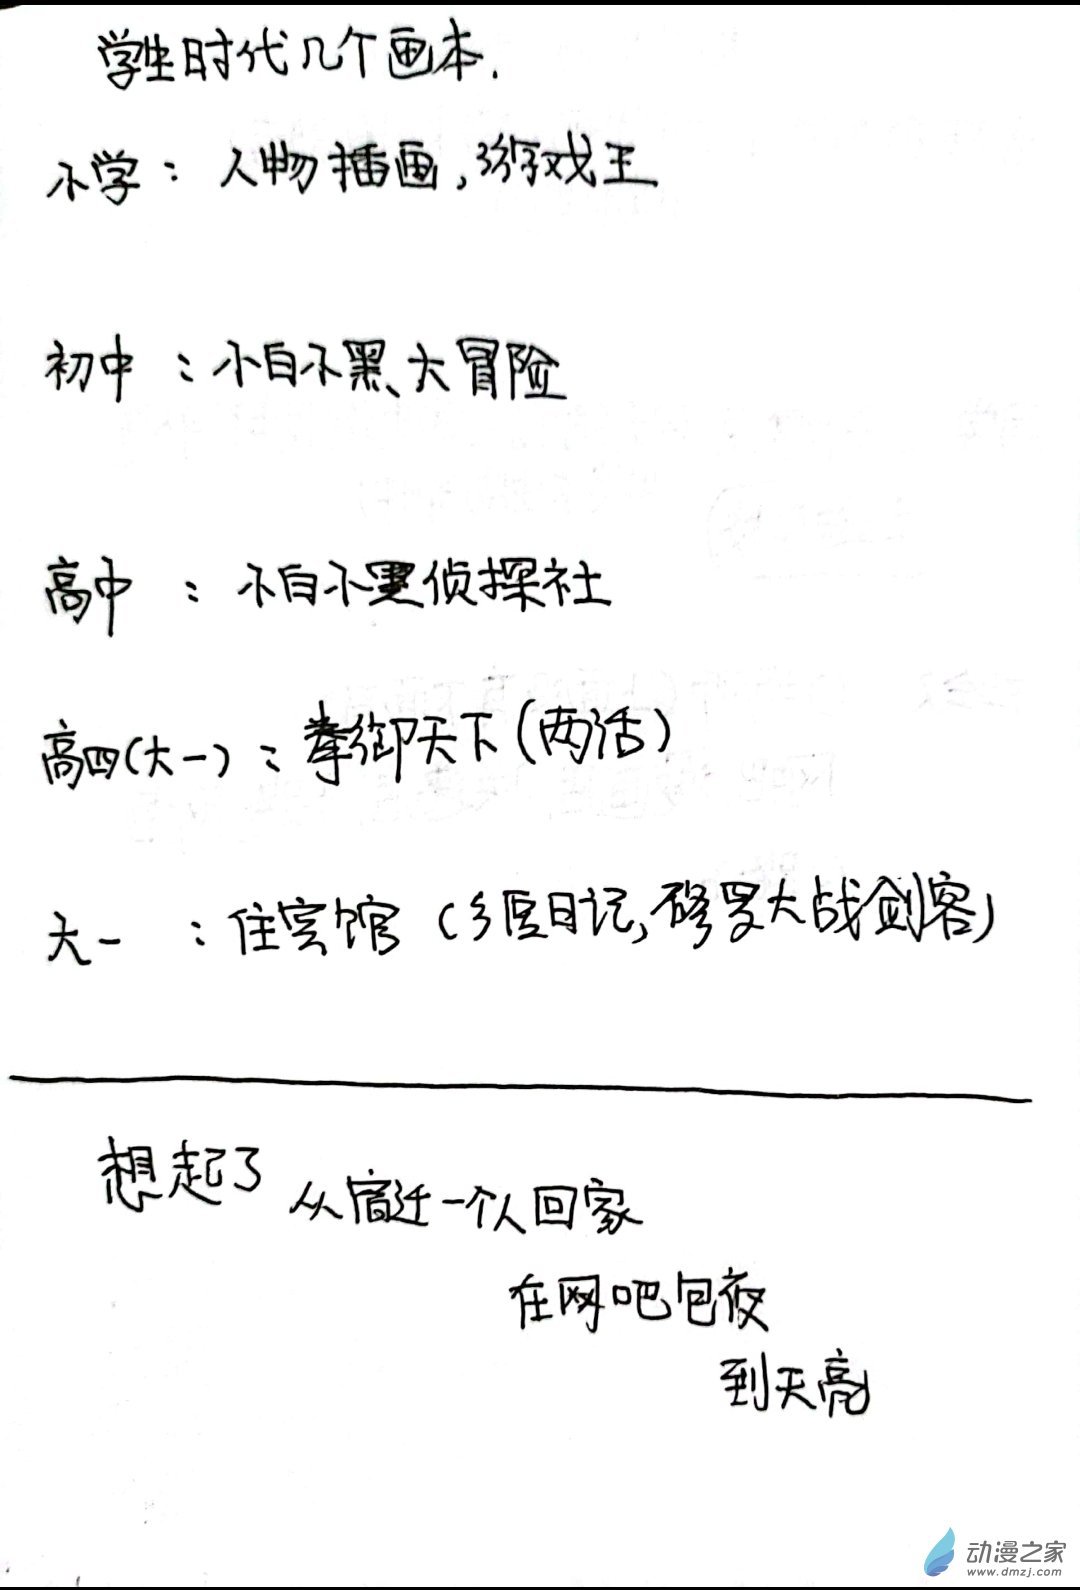 学生时代几个画本.
小学：人物插画,游戏王
初中：小白小黑大冒险
高中：小白小黑侦探社
高四(大一)：拳御天下(两话)
大一：住宾馆(乡医日记,修罗大战剑客)
想起了
从宿迁一个人回家
在网吧包夜
到天亮
动漫之家
www.dmzj.com